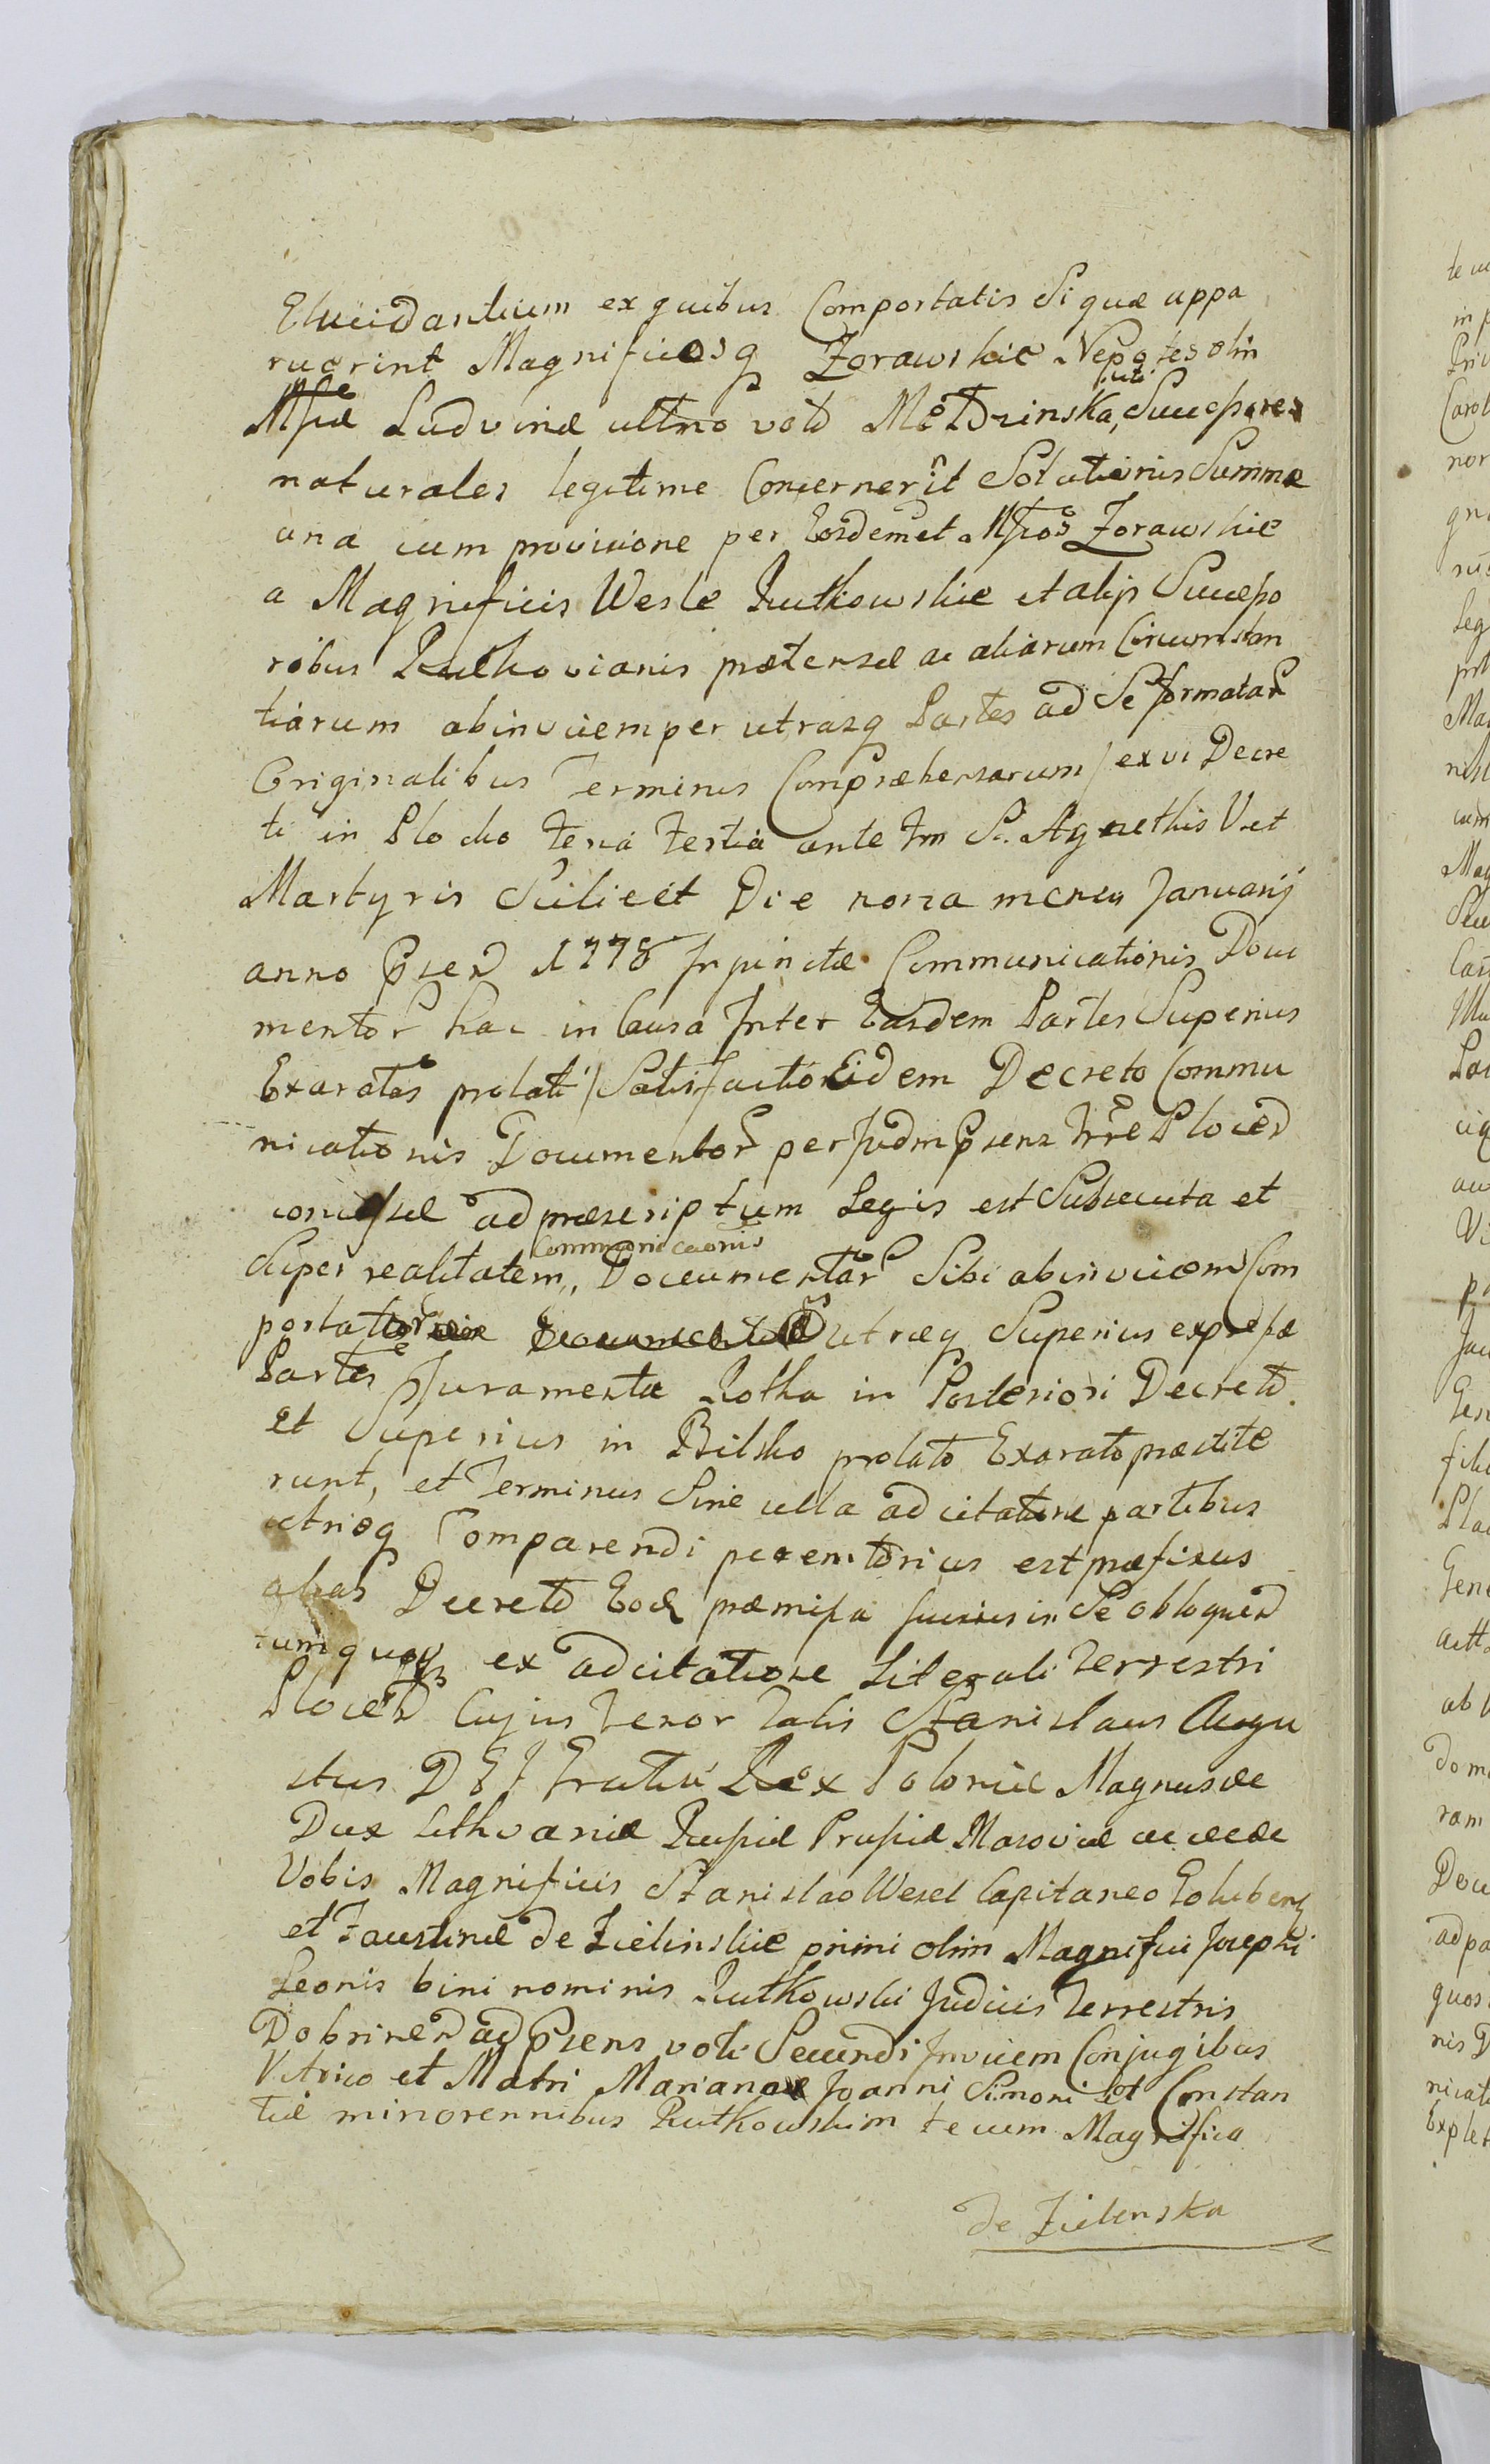 Elucidantium ex quibus Comportatis Si quæ appa
ruerint Magnificosq Zorawskie Nepotes olim
Mfcæ Ludvinæ ultmo voto Mdzinska, uti Successores
naturales legitime Concernerit Solutionis Summæ
una cum provisione per Eosdemet Mfcos Zorawskie
a Magnificis Wesle Rutkowskie et alijs Successo
ribus Rutkovianis prætensæ ac aliarum Circumstan
tiarum abinvicem per utrasq Partes ad Se formatar
Originalibus Terminis Compræhensarum / ex vi Decre
ti in Plocko feria tertia ante fm S. Agnethis V. et
Martyris Scilicet Die nona mensis Januarij
anno Psen 1778 Injunctæ Communicationis Docu
mentor hac in Causa Inter Easdem Partes Superius
Exaratas prolati / Satisfactio Eidem Decreto Commu
nicationis Documentor per Judm Psens Trre Plocen
conclusæ ad præscriptum Legis est Subsecuta et
Super realitatem,, Communicaonis Documentar Sibi abinvicem Com
portator utræq Superius expressæ
Partes Juramenta Rotha in Posteriori Decreto
et Superius in Bilsko prolato Exarato præstite
runt, et Terminus Sine ulla adcitatione partibus
utrisq Comparendi peremtorius est præfixus
alias Decreto Eod præmissa fusius in Se obloquen
tumquoq ex adcitatione Literali Terrestri
Plocen Cujus Tenor talis Stanislaus Augu
stus DEI Gratia Rex Poloniæ Magnus
Dux Lithvaniæ Russiæ Prussiæ Masoviæ
Vobis Magnificis Stanislao Wesel Capitaneo Golubens
et Faustinæ de Zielinskie primi olim Magnifici Josephi
Leonis bini nominis Rutkowski Judicis Terrestris
Dobrinen ad Psens voti Secundi Invicem Conjugibus
Vitrico et Matri Marianæ Joanni Simoni et Constan
tiæ minorennibus Rutkowskim tecum Magnifica
de Zielenska